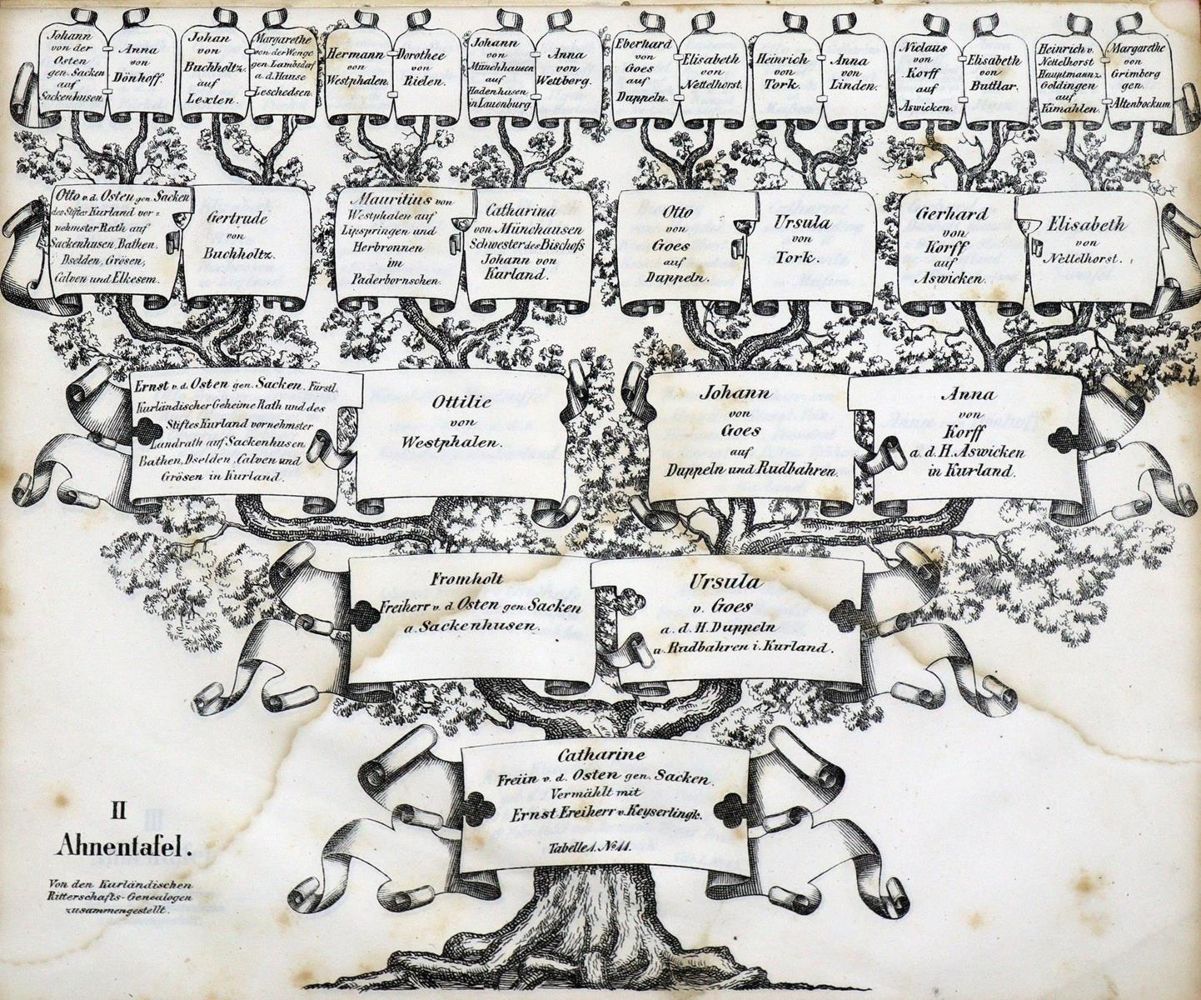 Johann
von der
Osten
gen. Sacken
auf
Sackenhusen.
Anna
von
Dönhoff.
Johan
von
Buchholtz.
auf
Lexten.
Margarethe
von der Wenge
gen. Lambsdorf
a. d. Hause
Leschedsen.
Hermann
von
Westphalen.
Dorothee
von
Rielen.
Johann
von
Münchhausen
auf
Hadenhusen
in Lauenburg
Anna
von
Wettberg.
Eberhard
von
Goes
auf
Duppeln.
Elisabeth
von
Nettelhorst.
Heinrich
von
Tork.
Anna
von
Linden.
Niclaus
von
Korff
auf
Aswicken.
Elisabeth
von
Buttlar.
Heinrich v.
Nettelhorst
Hauptmann z.
Goldingen
auf
Kimahlen.
Margarethe
von
Grimberg
gen.
Altenbockum
Otto v. d. Osten gen. Sacken
des Stiftes Kurland vor=
nehmster Rath auf
Sackenhusen, Bathen,
Dselden, Grösen,
Calven und Elkesem.
Gertrude
von
Buchholtz.
Mauritius von
Westphalen auf
Lipspringen und
Herbronnen
im
Paderbornschen.
Catharina
von Münchausen
Schwester des Bischofs
Johann von
Karland.
Otto
von
Goes
auf
Duppeln.
Ursula
von
Tork.
Gerhard
von
Korff
auf
Aswicken.
Elisabeth
von
Nettelhorst.
Ernst v. d. Osten gen. Sacken. Fürstl.
Kurländischer Geheime Rath und des
Stiftes Kurland vornehmster
Landrath auf Sackenhusen
Bathen, Dselden, Calven und
Grösen in Kurland.
Ottilie
von
Westphalen.
Johann
von
Goes
auf
Duppeln und Rudbahren.
Anna
von
Korff
a. d. H. Aswicken
in Kurland.
Fromholt
Freiherr v. d. Osten gen. Sacken
a. Sackenhusen.
Ursula
v. Goes
a. d. H. Duppeln
u. Rudbahren i. Kurland.
Catharine
Freiin v. d. Osten gen. Sacken.
Vermählt mit
Ernst Freiherr v. Keyserlingk.
Tabelle 1. No 11.
II
Ahnentafel.
Von den Kurländischen
Ritterschafts-Genealogen
zusammengestellt.